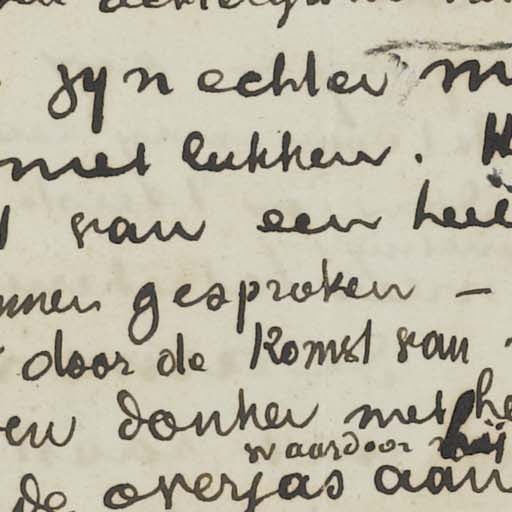 zyn echter
met lukken.
van een heil
nnen gesproken –
door de Komst van
en donker met he
waardoor hij
de overjas aan